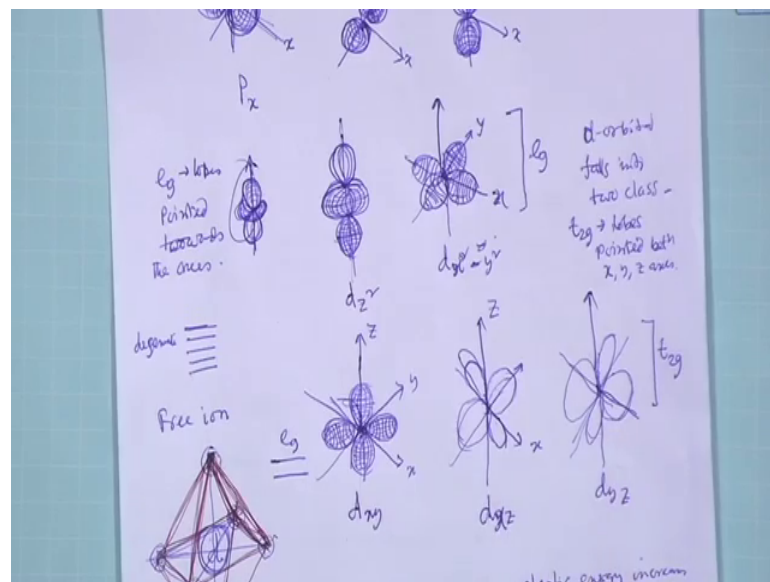 x
x
x
Px
y
x
eg
eg → lobes
pointed
towards
the axes.
dz²
dx²-y²
d-orbital
falls into
two class-
t2g → lobes
pointed both
x, y, z axes.
Z
y
x
Z
x
t2g
Free ion
eg
dxy
dxz
dyz
energy increas